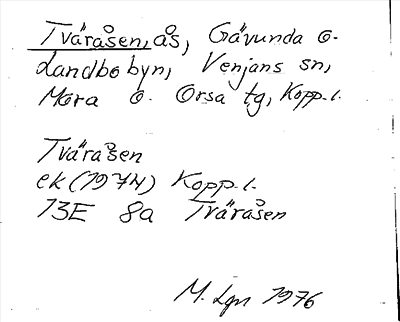 Tväråsen, ås, Gävunda o.
Landbobyn, Venjans sn,
Mora o. Orsa tg, Kopp. l.
Tväråsen
ek (1974) Kopp. l.
13E 8a Tväråsen
M. Lgn 1976